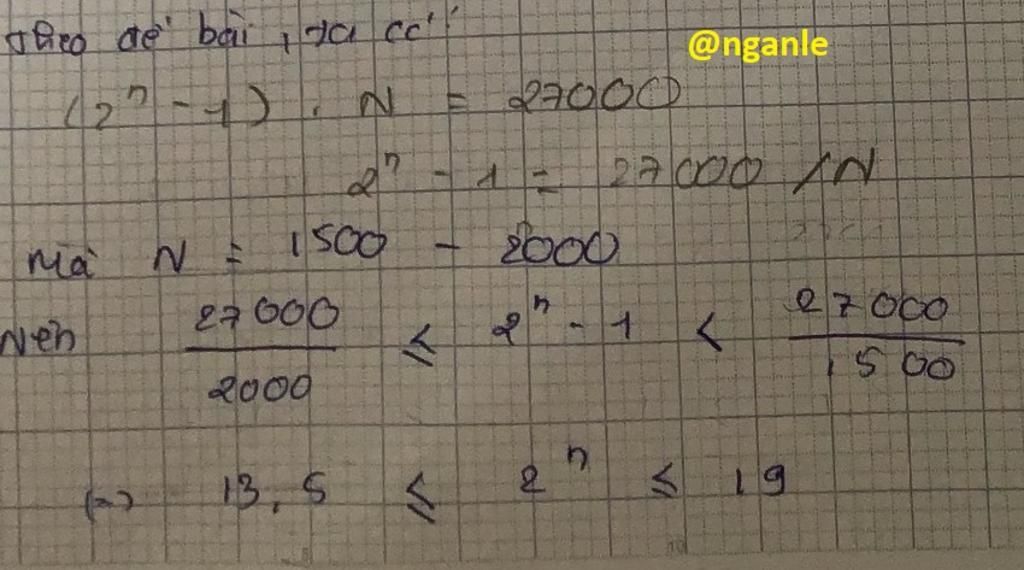 Theo đề bài, ta có:
@nganle
(2ⁿ - 1) . N = 27000
2ⁿ - 1 = 27000 / N
Mà N = 1500 - 2000
Nên 27000/2000 ≤ 2ⁿ - 1 < 27000/1500
(=) 13,5 ≤ 2ⁿ ≤ 19